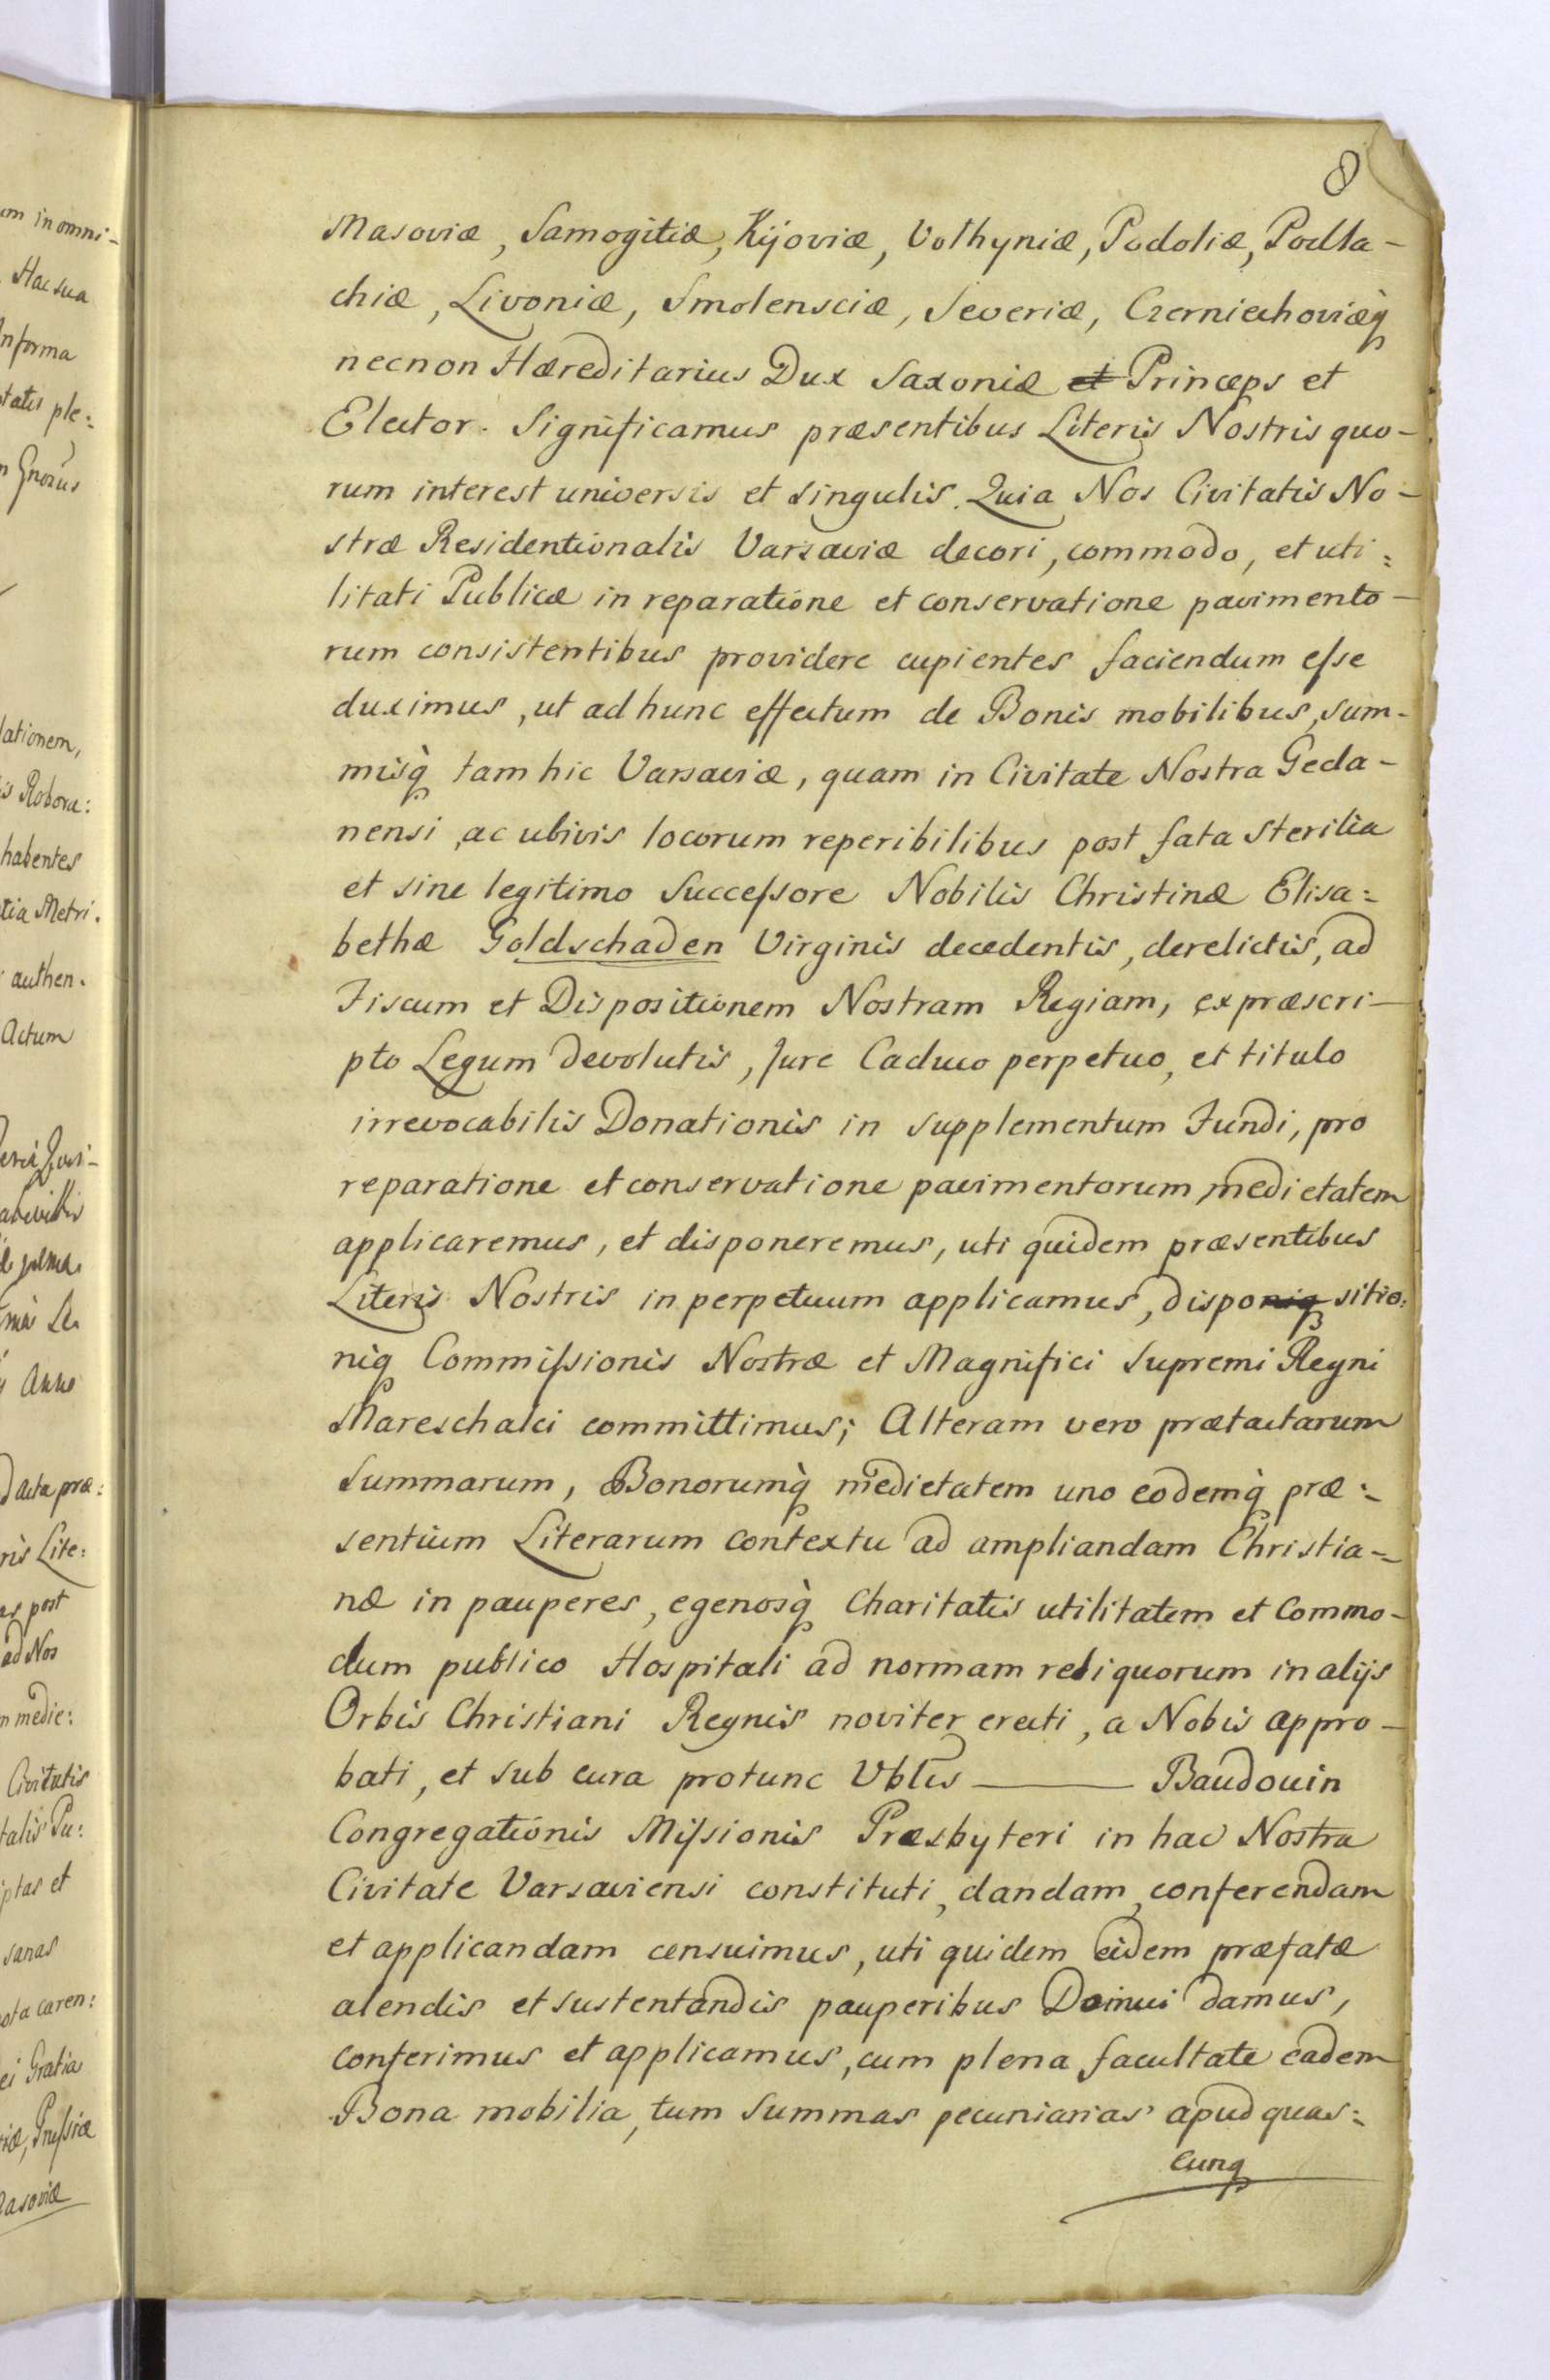 8
Masoviæ, Samogitiæ, Kijoviæ, Volhyniæ, Podoliæ, Podla-
chiæ, Livoniæ, Smolensciæ, Severiæ, Czerniechoviæq̀
necnon Hæreditarius Dux Saxoniæ et Princeps et
Elector. Significamus præsentibus Literis Nostris quo-
rum interest universis et singulis. Quia Nos Civitatis No-
stræ Residentionalis Varsaviæ decori, commodo, et uti:
litati Publicæ in reparatione et conservatione pavimento-
rum consistentibus providere cupientes faciendum eſse
duximus, ut ad hunc effectum de Bonis mobilibus, sum-
misq̀ tam hic Varsaviæ, quam in Civitate Nostra Geda-
nensi, ac ubivis locorum reperibilibus post fata sterilia
et sine legitimo Succeſsore Nobilis Christinæ Elisa:
bethæ Goldschaden Virginis decedentis, derelictis, ad
Fiscum et Dispositionem Nostram Regiam, ex præscri-
pto Legum devolutis, Jure Caduco perpetuo, et titulo
irrevocabilis Donationis in supplementum Fundi, pro
reparatione et conservatione pavimentorum medietatem
applicaremus, et disponeremus, uti quidem præsentibus
Literis Nostris in perpetuum applicamus, disponiq sitio:
niq Commiſsionis Nostræ et Magnifici Supremi Regni
Mareschalci committimus; Alteram vero prætactarum
Summarum, Bonorumq̀ medietatem uno eodemq̀ præ:
sentium Literarum contextu ad ampliandam Christia-
næ in pauperes, egenosq̀ Charitatis utilitatem et Commo-
dum publico Hospitali ad normam reliquorum in alijs
Orbis Christiani Regnis noviter erecti, a Nobis appro-
bati, et sub cura protunc Vblis ——— Baudouin
Congregationis Miſsionis Præsbyteri in hac Nostra
Civitate Varsaviensi constituti, dandam, conferendam
et applicandam censuimus, uti quidem eidem præfatæ
alendis et sustentandis pauperibus Domui damus,
conferimus et applicamus, cum plena facultate eadem
Bona mobilia, tum Summas pecuniarias apud quas:
cunq